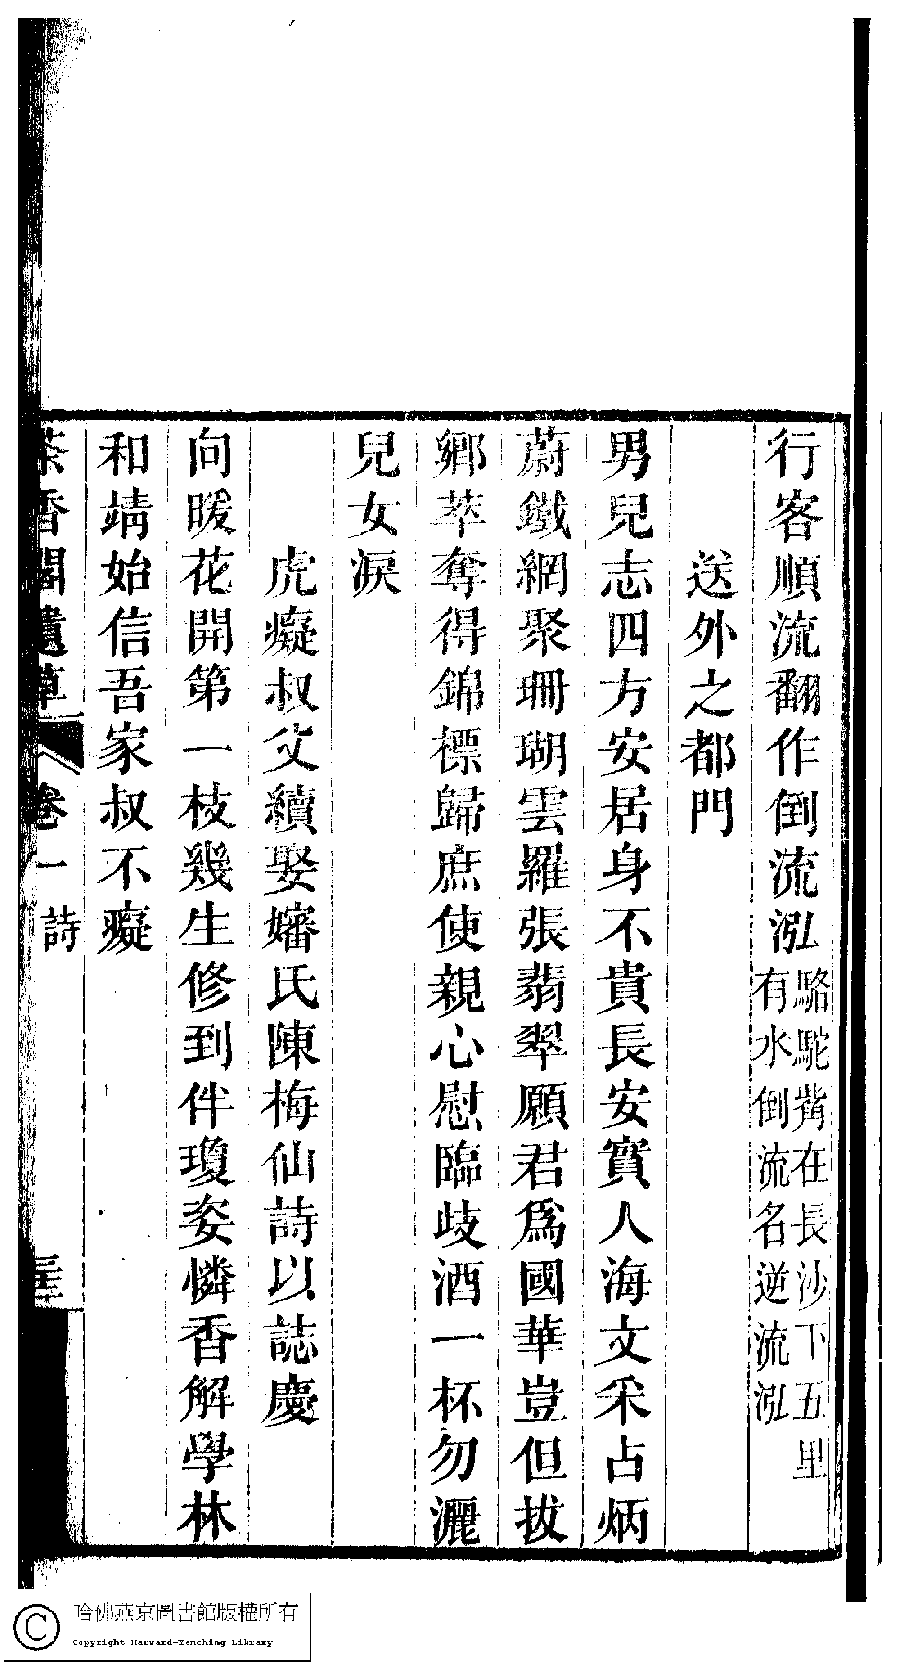 行客順流翻作倒流泓駱駝觜在長沙下五里有水倒流名逆流泓
送外之都門
男兒志四方安居身不貴長安寶人海文采占炳
蔚鐵網聚珊瑚雲羅張翡翠願君爲國華豈但拔
鄉萃奪得錦標歸庶使親心慰臨歧酒一杯勿灑
兒女淚
虎癡叔父續娶嬸氏陳梅仙詩以誌慶
向暖花開第一枝幾生修到伴瓊姿憐香解學林
和靖始信吾家叔不癡
茶香閣遺草 卷一 詩
哈佛燕京圖書館版權所有
Copyright Harvard-Yenching Library